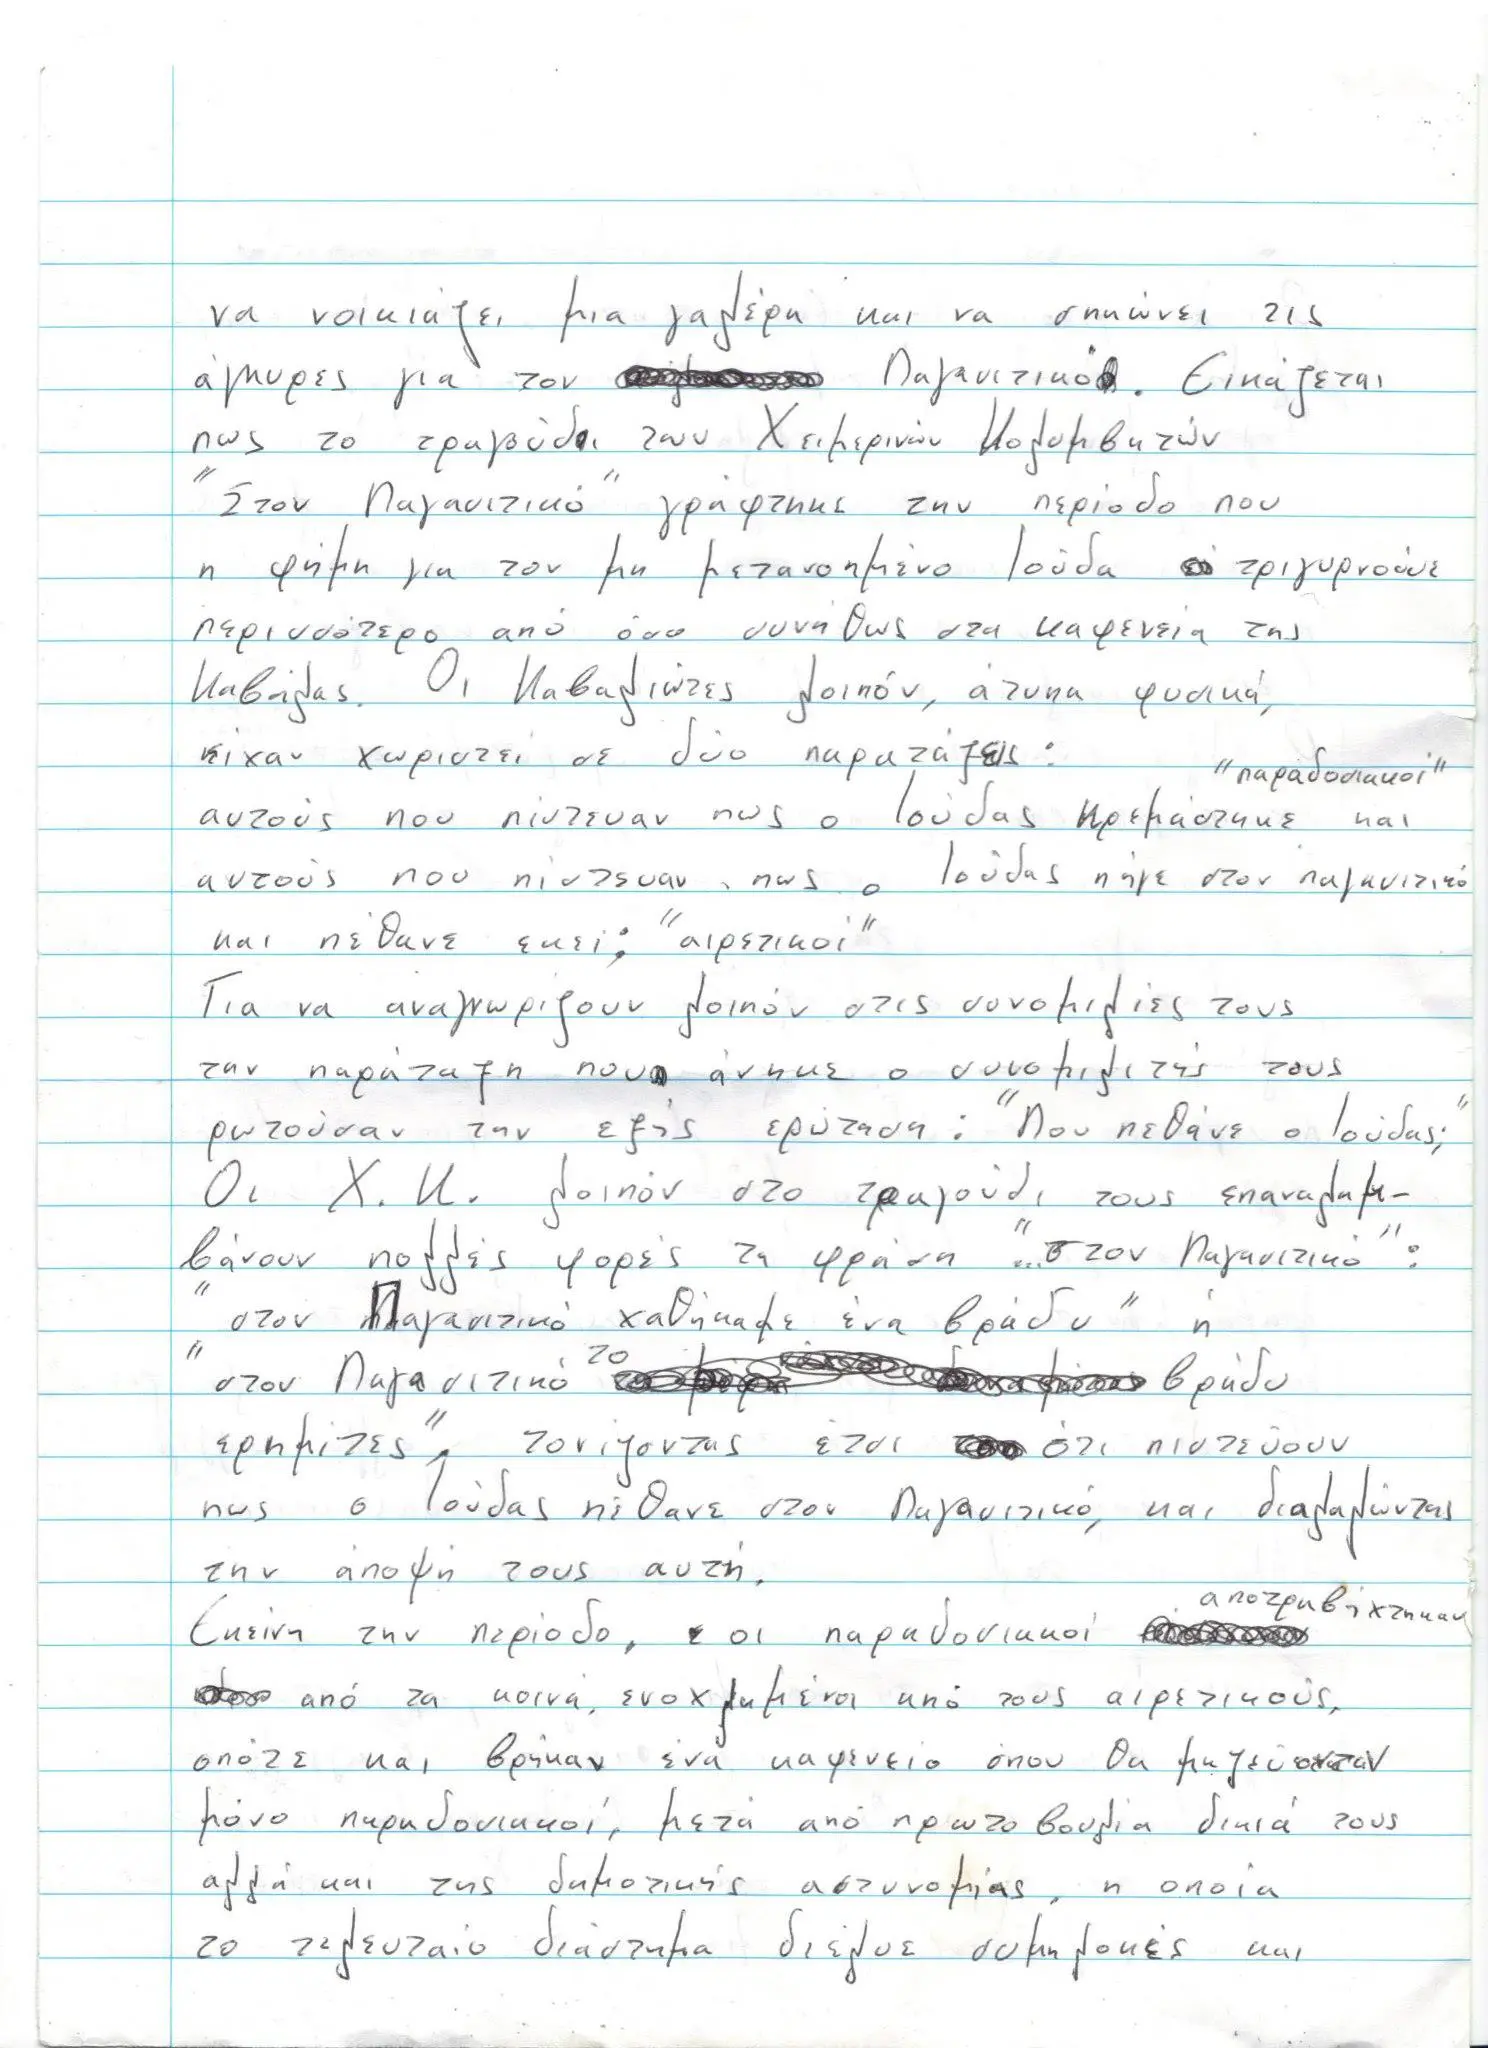 να νοικιάζει μια γαλέρα και να σηκώνει τις
άγκυρες για τον Παγασιτικό. Εικάζεται
πως το τραγούδι των Χειμερινών Κολυμβητών
"Στον Παγασιτικό" γράφτηκε την περίοδο που
η φήμη για τον μη μετανοημένο Ιούδα τριγυρνούσε
περισσότερο από όσο συνήθως στα καφενεία της
Καβάλας. Οι Καβαλιώτες λοιπόν, άτυπα φυσικά,
είχαν χωριστεί σε δύο παρατάξεις:
"παραδοσιακοί"
αυτούς που πίστευαν πως ο Ιούδας κρεμάστηκε και
αυτούς που πίστευαν πως ο Ιούδας πήγε στον παγασιτικό
και πέθανε εκεί; "αιρετικοί"
Για να αναγνωρίζουν λοιπόν στις συνομιλίες τους
την παράταξη που άνηκε ο συνομιλιτής τους
ρωτούσαν την εξής ερώτηση: "Που πεθάνε ο Ιούδας;"
Οι Χ.Κ. λοιπόν στο τραγούδι τους επαναλαμ-
βάνουν πολλές φορές τη φράση "...στον Παγασιτικό":
"στον Παγασιτικό χαθήκαμε ένα βράδυ" ή
"στον Παγασιτικό το βράδυ
ερημίτες", τονίζοντας έτσι ότι πιστεύουν
πως ο Ιούδας πέθανε στον Παγασιτικό, και διαλαλώντας
την άποψή τους αυτή.
Εκείνη την περίοδο, οι παραδοσιακοί αποτραβήχτηκαν
από τα κοινά, ενοχλημένοι από τους αιρετικούς,
οπότε και βρήκαν ένα καφενείο όπου θα μαζεύονταν
μόνο παραδοσιακοί, μετά από πρωτοβουλία δικιά τους
αλλά και της δημοτικής αστυνομίας, η οποία
το τελευταίο διάστημα διέλυε συμπλοκές και